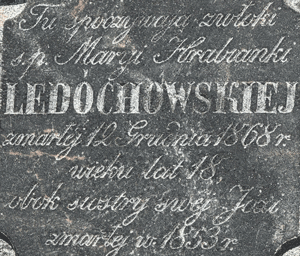 Tu spoczywają zwłoki
ś.p. Maryi Hrabianki
LEDÓCHOWSKIEJ
zmarłéj 12 Grudnia 1868 r.
wieku lat 18,
obok siostry swéj
zmarłej w. 1853 r.